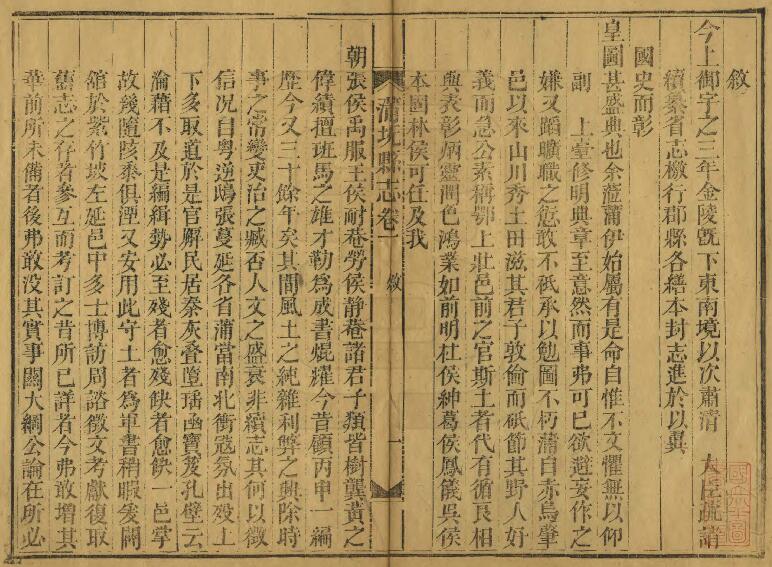 敘
今上御宇之三年金陵旣下東南境以次肅清 大臣疏請
續纂省志檄行郡縣各繕本封志進於以異
國史而彰
皇圖甚盛典也余蒞蒲伊始屬有是命自惟不文懼無以仰
副 上臺修明典章至意然而事弗可巳欲避妄作之
嫌又蹈曠職之愆敢不祇承以勉圖不朽蒲自赤烏肇
邑以來山川秀土田滋其君子敦倫而砥節其野人好
義而急公素稱鄂上壯邑前之官斯土者代有循良相
與表彰炳靈潤色鴻業如前明杜侯紳葛侯鳳儀吳侯
本固林侯可任及我
蒲圻縣志卷一 敘 一
朝張侯禹服王侯耐菴勞侯靜菴諸君子類皆樹龔黃之
偉績擅班馬之雄才勒為成書焜燿今昔顧丙申一編
歷今又三十餘年矣其間風土之純雜利弊之興除時
事之常變吏治之臧否人文之盛衰非續志其何以徵
信况自粵逆鴟張蔓延各省蒲當南北衝寇氛出沒上
下多取道於是官廨民居秦灰叠墮瑤函寶笈孔壁云
淪藉不及是編緝勢必至殘者愈殘缺者愈缺一邑掌
故幾隨陔黍俱湮又安用此守土者為軍書稍暇爰闢
舘於紫竹坡左延邑中多士博訪周諮徵文考獻復取
舊志之存者參互而考訂之昔所已詳者今弗敢增其
華前所未備者後弗敢没其實事關大綱公論在所必